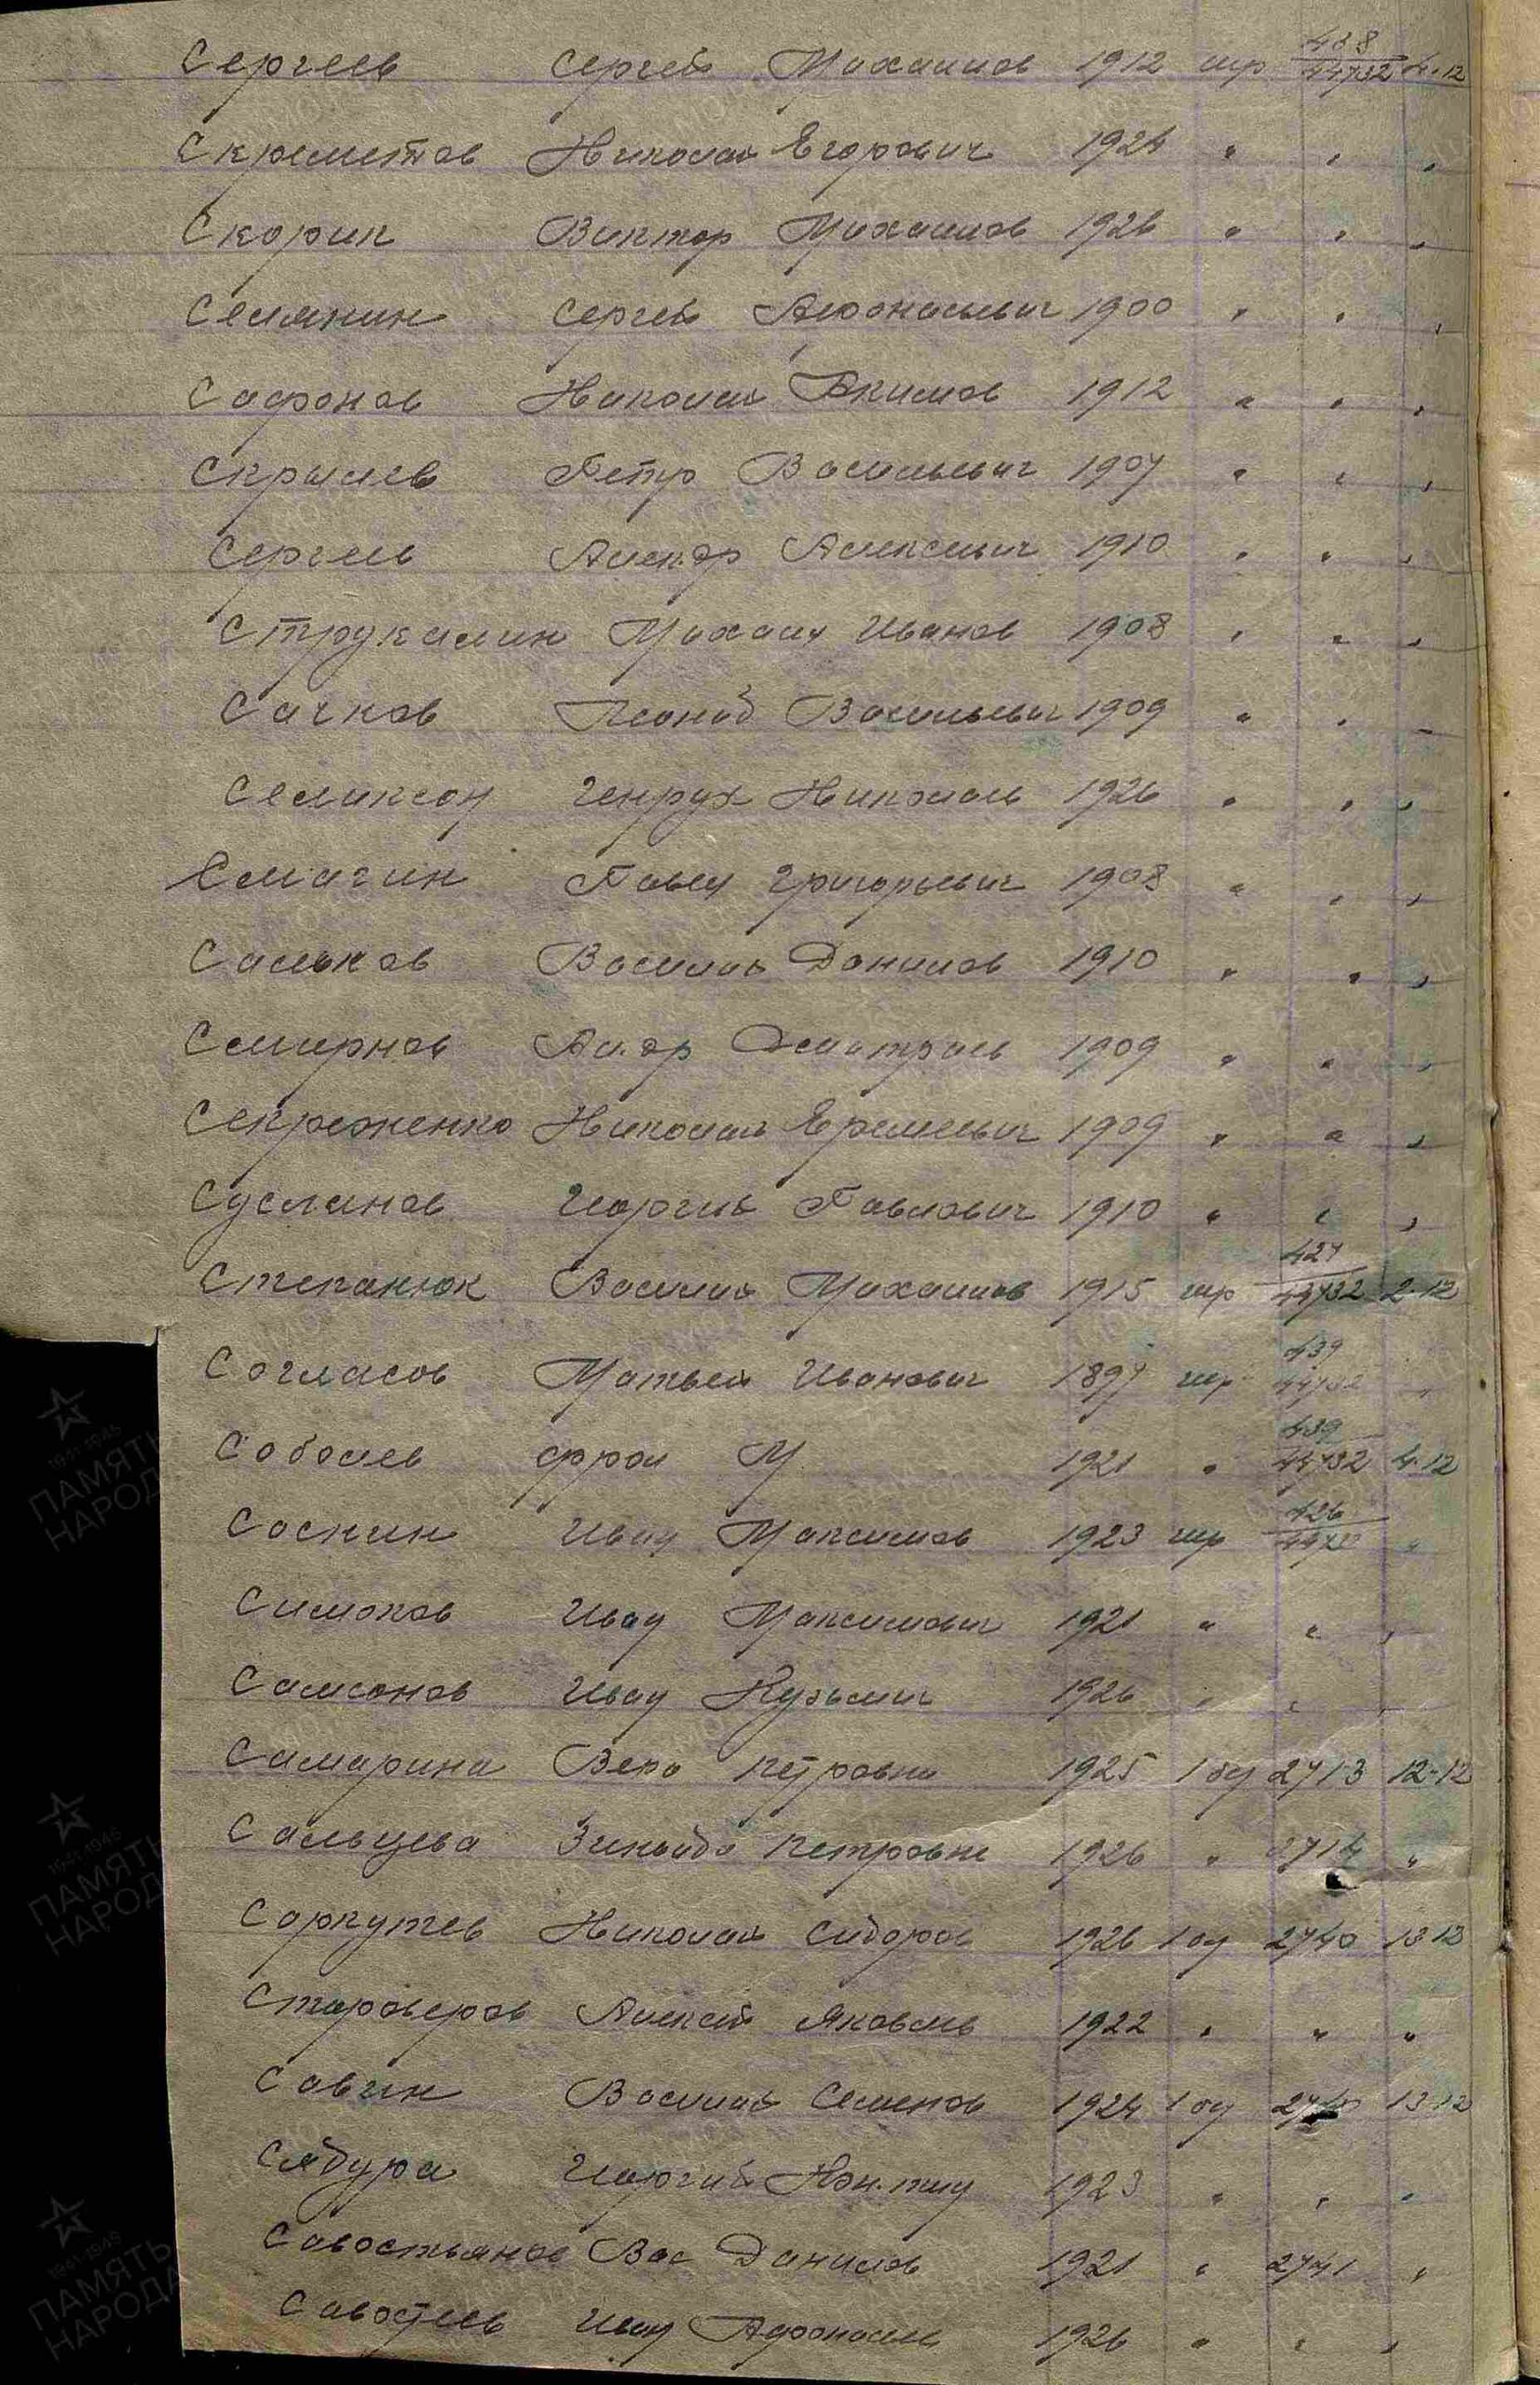 Сергеев Сергей Михайлов 1912 шр 438/44732 4.12
Скреметов Николай Егорович 1924 " " "
Скорик Виктор Михайлов 1926 " " "
Селянин Сергей Афонасьевич 1900 " " "
Сафонов Николай Екимов 1912 " " "
Скрылев Петр Васильевич 1907 " " "
Сергеев Алек.др Алексеевич 1910 " " "
Струкалин Михаил Иванов 1908 " " "
Сачков Леонид Васильевич 1909 " " "
Селиксон Генрух Николаев 1926 " " "
Смагин Павел Григорьевич 1908 " " "
Сальков Василий Данилов 1910 " " "
Смирнов Ал.др Дмитриев 1909 " " "
Николай Еремеевич 1909 " " "
Суслинов Георгий Павлович 1910 " " "
Степанюк Василий Михайлов 1915 шр 427/44732 2.12
Согласов Матвей Иванович 1897 шр 439/44732 "
Соболев Фрол М. 1921 " 439/44732 4.12
Соснин Иван Максимов 1923 шр 426/44732 "
Симонов Иван Максимович 1921 " " "
Самсонов Иван Кузьмич 1926 " " "
Самарина Вера Петровна 1925 1 2713 12-12
Сальцева Зинаида Петровна 1926 " 2714 "
Саркутев Николай Сидоров 1926 1 оу 2740 13 12
Староверов Алексей Яковлев 1922 " " "
Савин Василий Семенов 1924 1 оу 2740 13 12
Сябура Георгий 1923 " " "
Савостьянов Вас Данилов 1921 " 2741 "
Иван Афонасьев 1926 " " "
ПАМЯТЬ НАРОДА
1941-1945